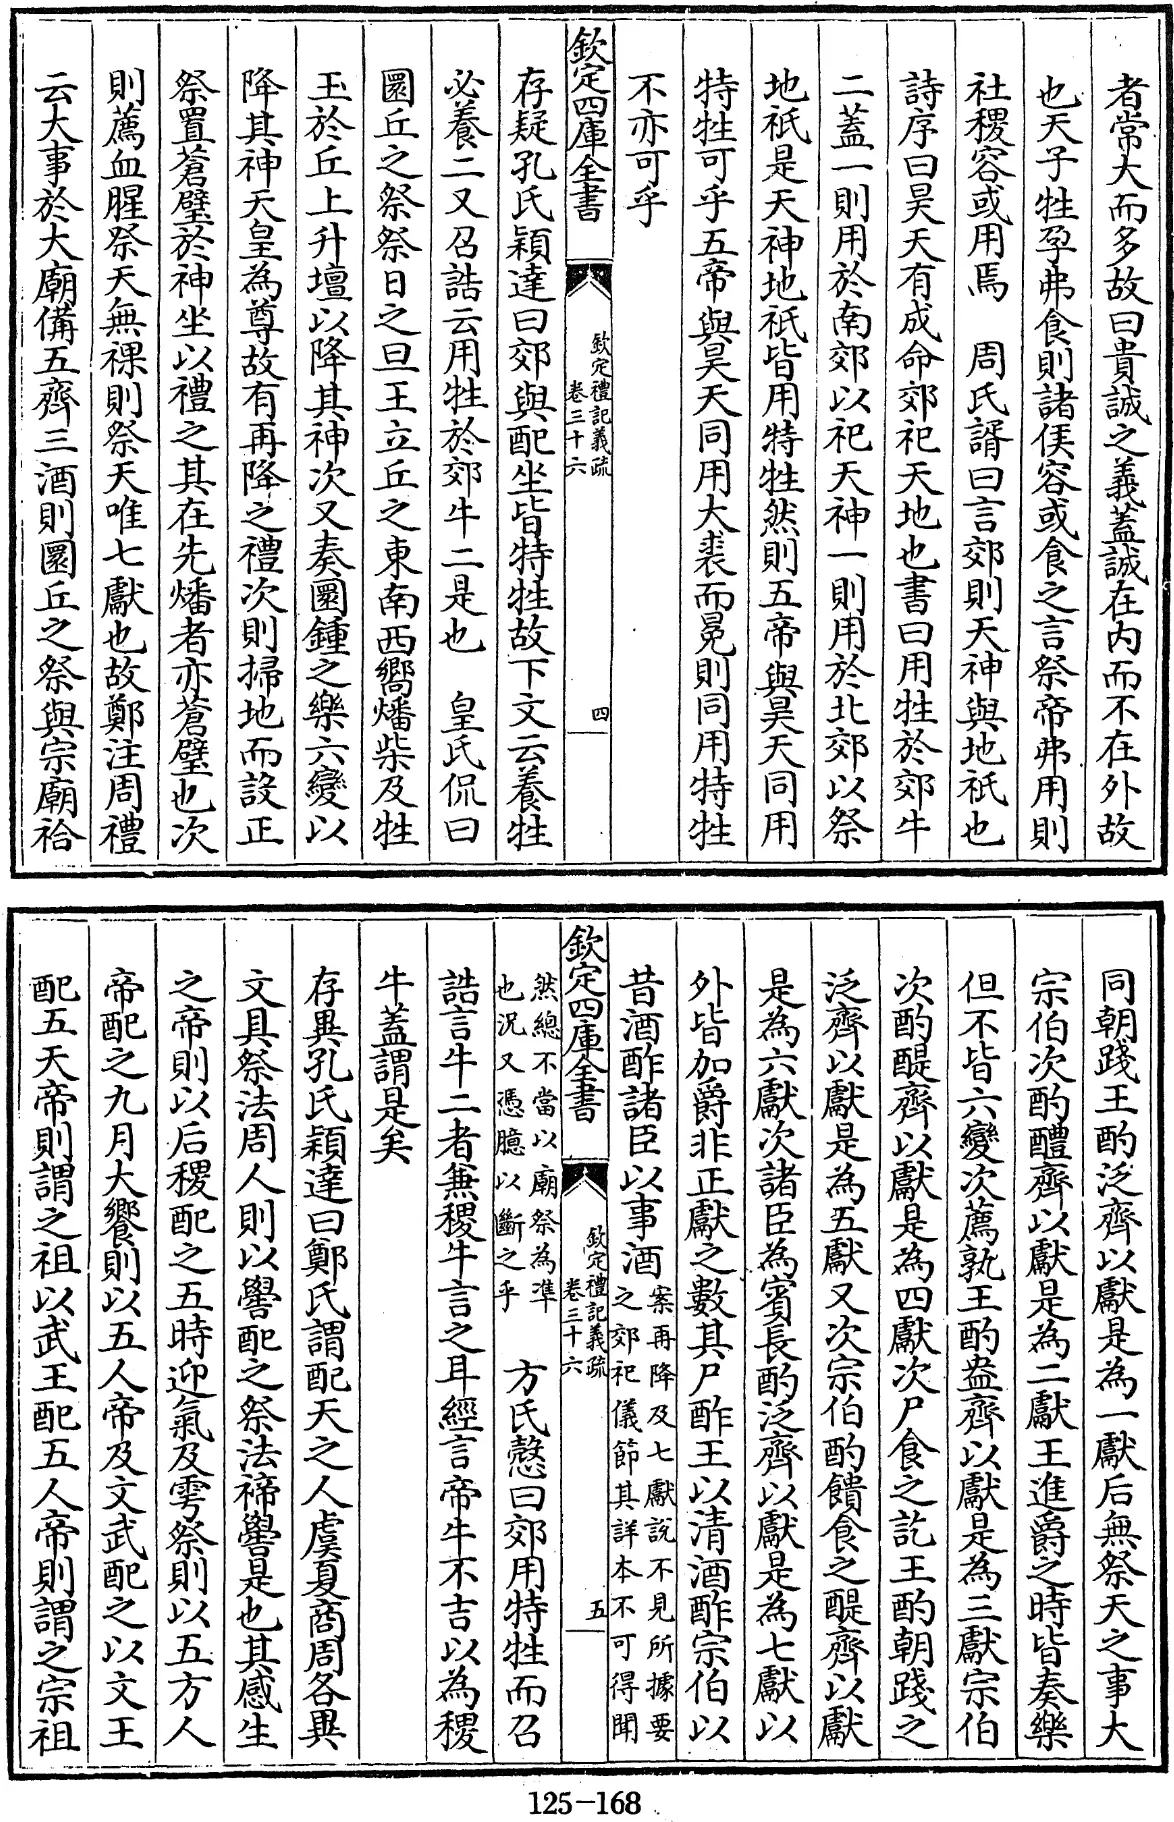 者常大而多故曰貴誠之義蓋誠在内而不在外故
也天子牲孕弗食則諸侯容或食之言祭帝弗用則
社稷容或用焉　周氏諝曰言郊則天神與地祇也
詩序曰昊天有成命郊祀天地也書曰用牲於郊牛
二蓋一則用於南郊以祀天神一則用於北郊以祭
地祇是天神地祇皆用特牲然則五帝與昊天同用
特牲可乎五帝與昊天同用大裘而冕則同用特牲
不亦可乎
欽定四庫全書
欽定禮記義疏
卷三十六
四
存疑孔氏穎達曰郊與配坐皆特牲故下文云養牲
必養二又召誥云用牲於郊牛二是也　皇氏侃曰
圜丘之祭祭日之旦王立丘之東南西嚮燔柴及牲
玉於丘上升壇以降其神次又奏圜鍾之樂六變以
降其神天皇為尊故有再降之禮次則掃地而設正
祭置蒼璧於神坐以禮之其在先燔者亦蒼璧也次
則薦血腥祭天無祼則祭天唯七獻也故鄭注周禮
云大事於大廟備五齊三酒則圜丘之祭與宗廟祫
同朝踐王酌泛齊以獻是為一獻后無祭天之事大
宗伯次酌醴齊以獻是為二獻王進爵之時皆奏樂
但不皆六變次薦孰王酌盎齊以獻是為三獻宗伯
次酌醍齊以獻是為四獻次尸食之訖王酌朝踐之
泛齊以獻是為五獻又次宗伯酌饋食之醍齊以獻
是為六獻次諸臣為賓長酌泛齊以獻是為七獻以
外皆加爵非正獻之數其尸酢王以清酒酢宗伯以
昔酒酢諸臣以事酒案再降及七獻說不見所據要
之郊祀儀節其詳本不可得聞
欽定四庫全書
欽定禮記義疏
卷三十六
五
然總不當以廟祭為準
也況又憑臆以斷之乎　方氏慤曰郊用特牲而召
誥言牛二者兼稷牛言之耳經言帝牛不吉以為稷
牛蓋謂是矣
存異孔氏穎達曰鄭氏謂配天之人虞夏商周各異
文具祭法周人則以嚳配之祭法禘嚳是也其感生
之帝則以后稷配之五時迎氣及雩祭則以五方人
帝配之九月大饗則以五人帝及文武配之以文王
配五天帝則謂之祖以武王配五人帝則謂之宗祖
125-168